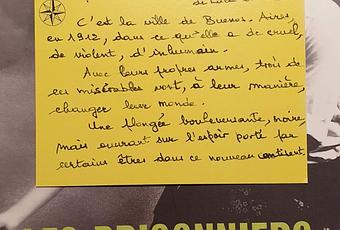 C'est la ville de Buenos-Aires,
en 1912, dans ce qu'elle a de cruel,
de violent, d'inhumain.
Avec leurs propres armes, trois de
ces misérables vont, à leur manière,
changer leur monde.
Une plongée bouleversante, noire
mais ouvrant sur l'espoir porté par
certains êtres dans ce nouveau continent.
LES PRISONNIERS